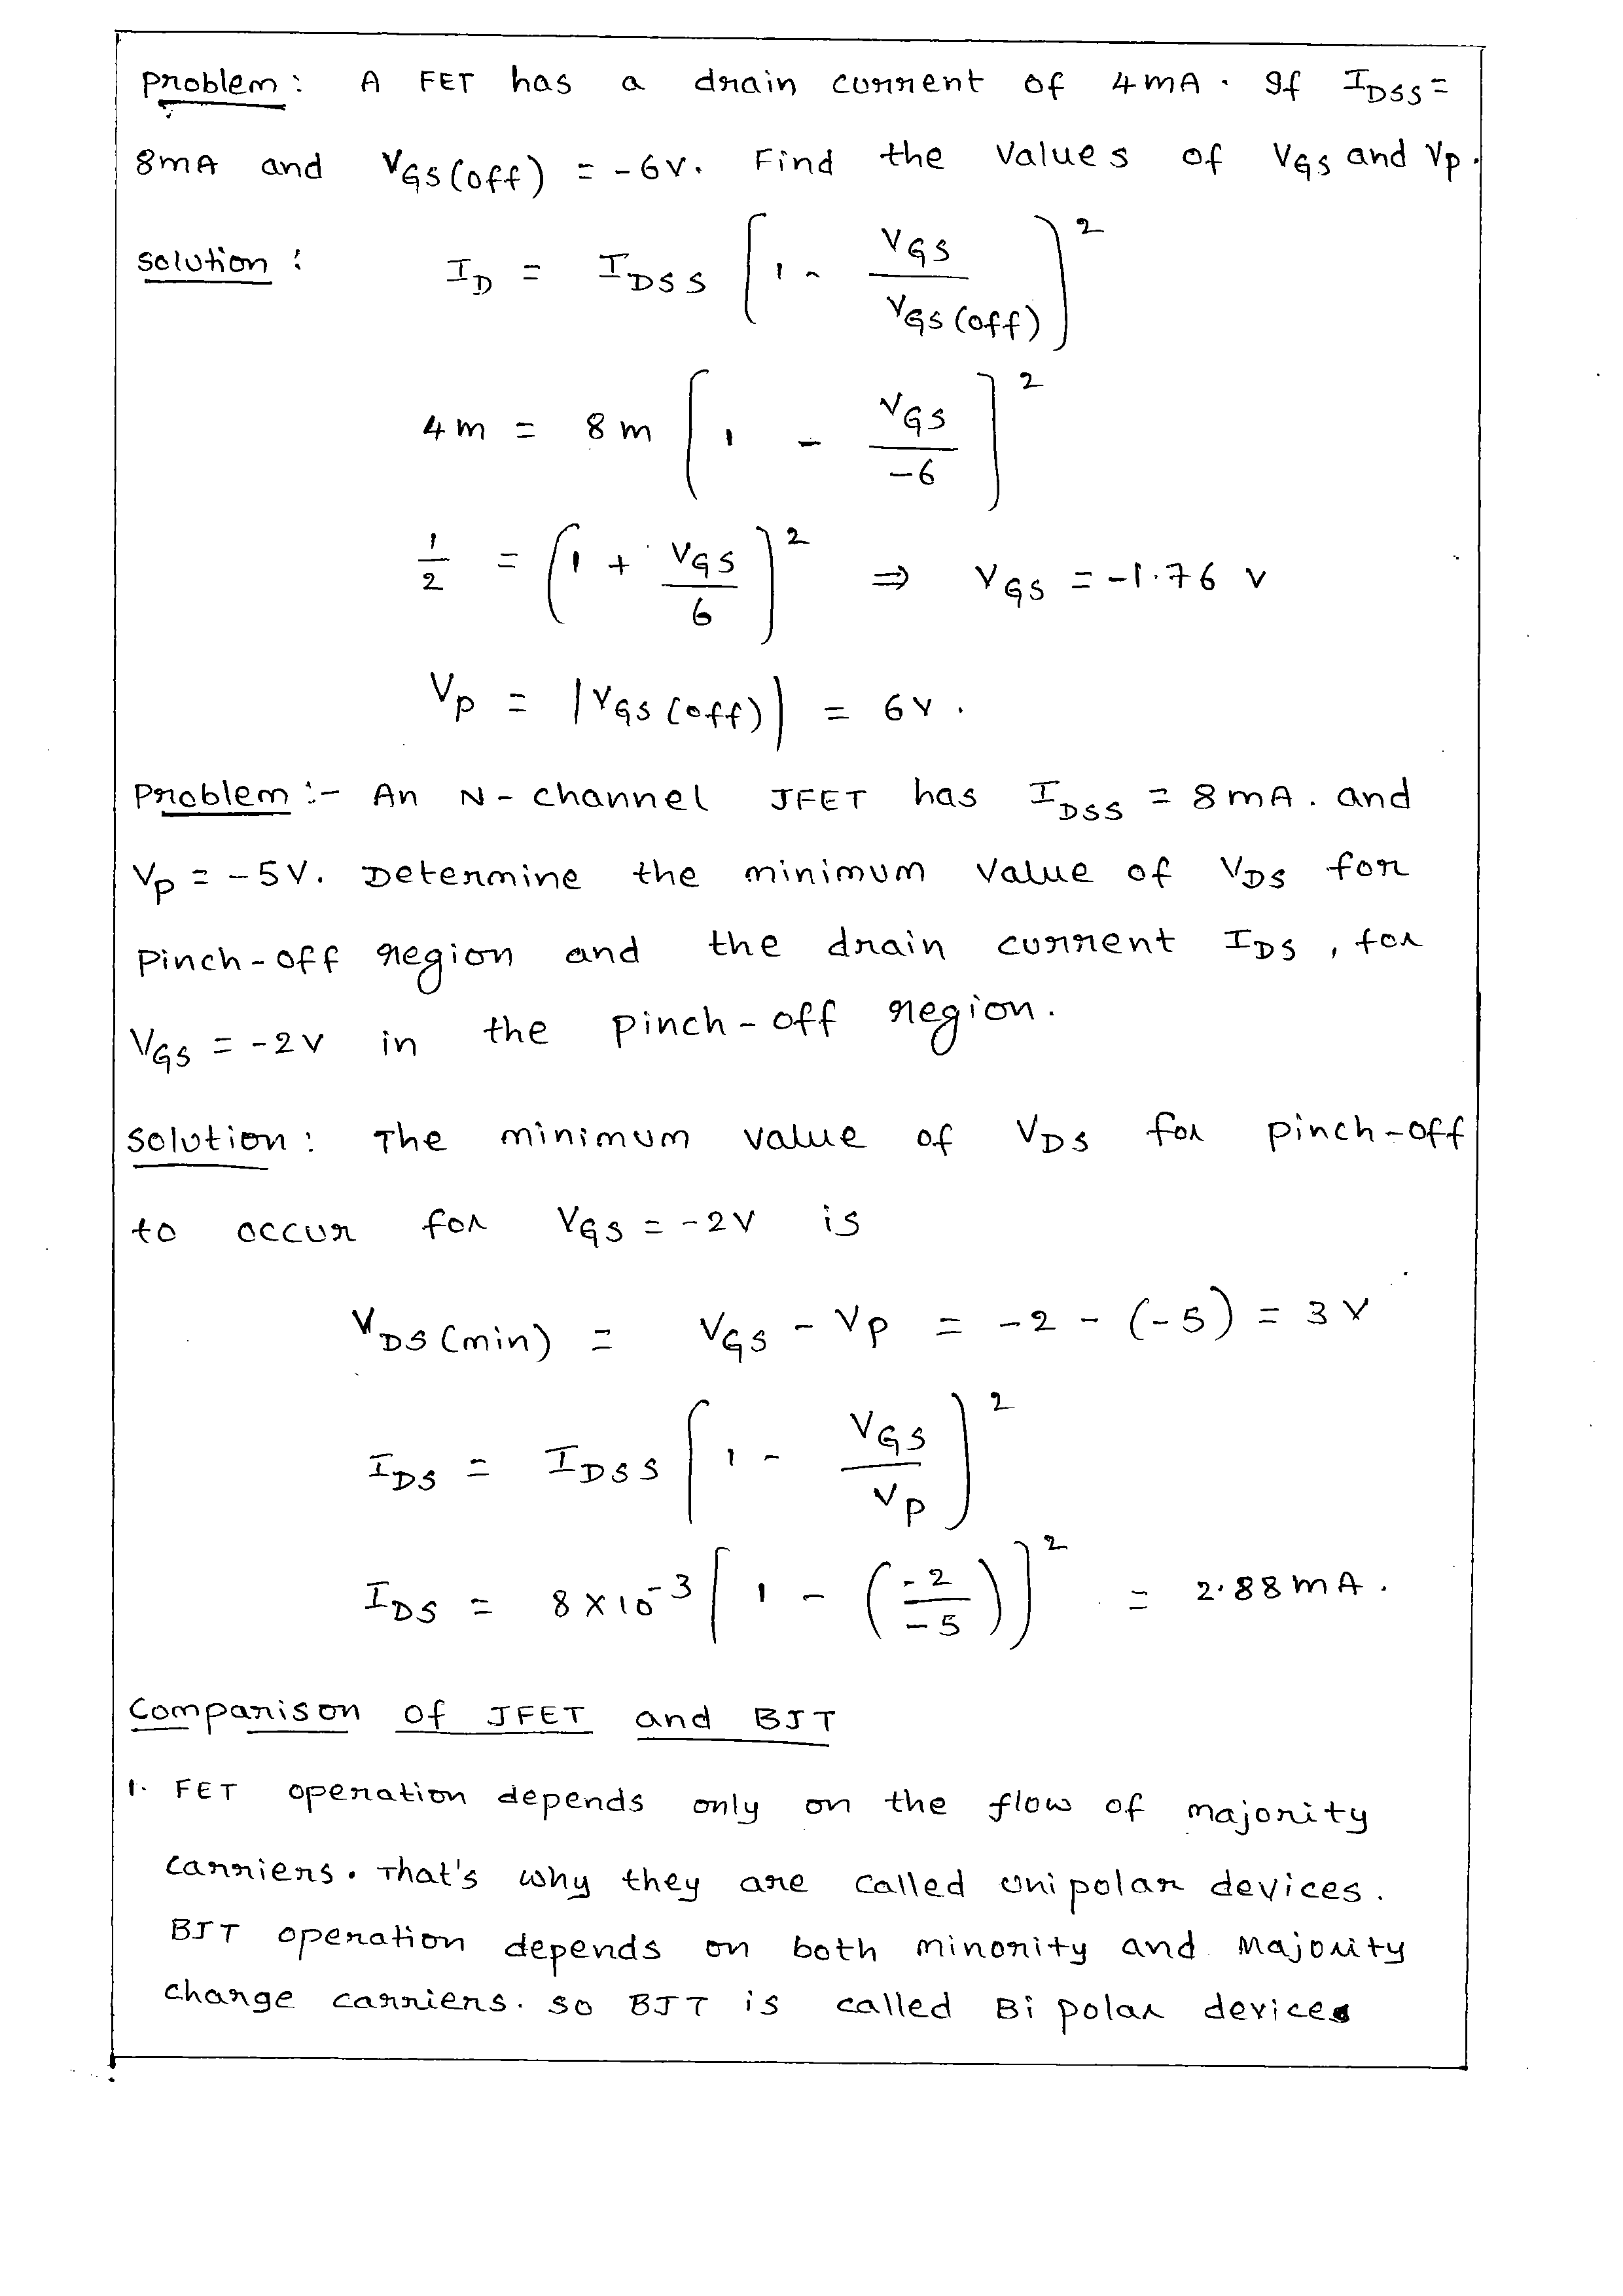 Problem: A FET has a drain current of 4mA. If IDSS =
8mA and VGS(off) = -6V. Find the values of VGS and Vp.
Solution: ID = IDSS [1 - VGS/VGS(off)]²
4m = 8m [1 - VGS/-6]²
1/2 = (1 + VGS/6)² ⇒ VGS = -1.76 V
Vp = |VGS(off)| = 6V.
Problem:- An N-channel JFET has IDSS = 8mA. and
Vp = -5V. Determine the minimum value of VDS for
Pinch-off region and the drain current IDS, for
VGS = -2V in the pinch-off region.
Solution: The minimum value of VDS for pinch-off
to occur for VGS = -2V is
VDS(min) = VGS - Vp = -2 - (-5) = 3V
IDS = IDSS [1 - VGS/Vp]²
IDS = 8×10⁻³ [1 - (-2/-5)]² = 2.88mA.
Comparison of JFET and BJT
1. FET operation depends only on the flow of majority
carriers. That's why they are called unipolar devices.
BJT operation depends on both minority and Majority
change carriers. So BJT is called Bi polar devices